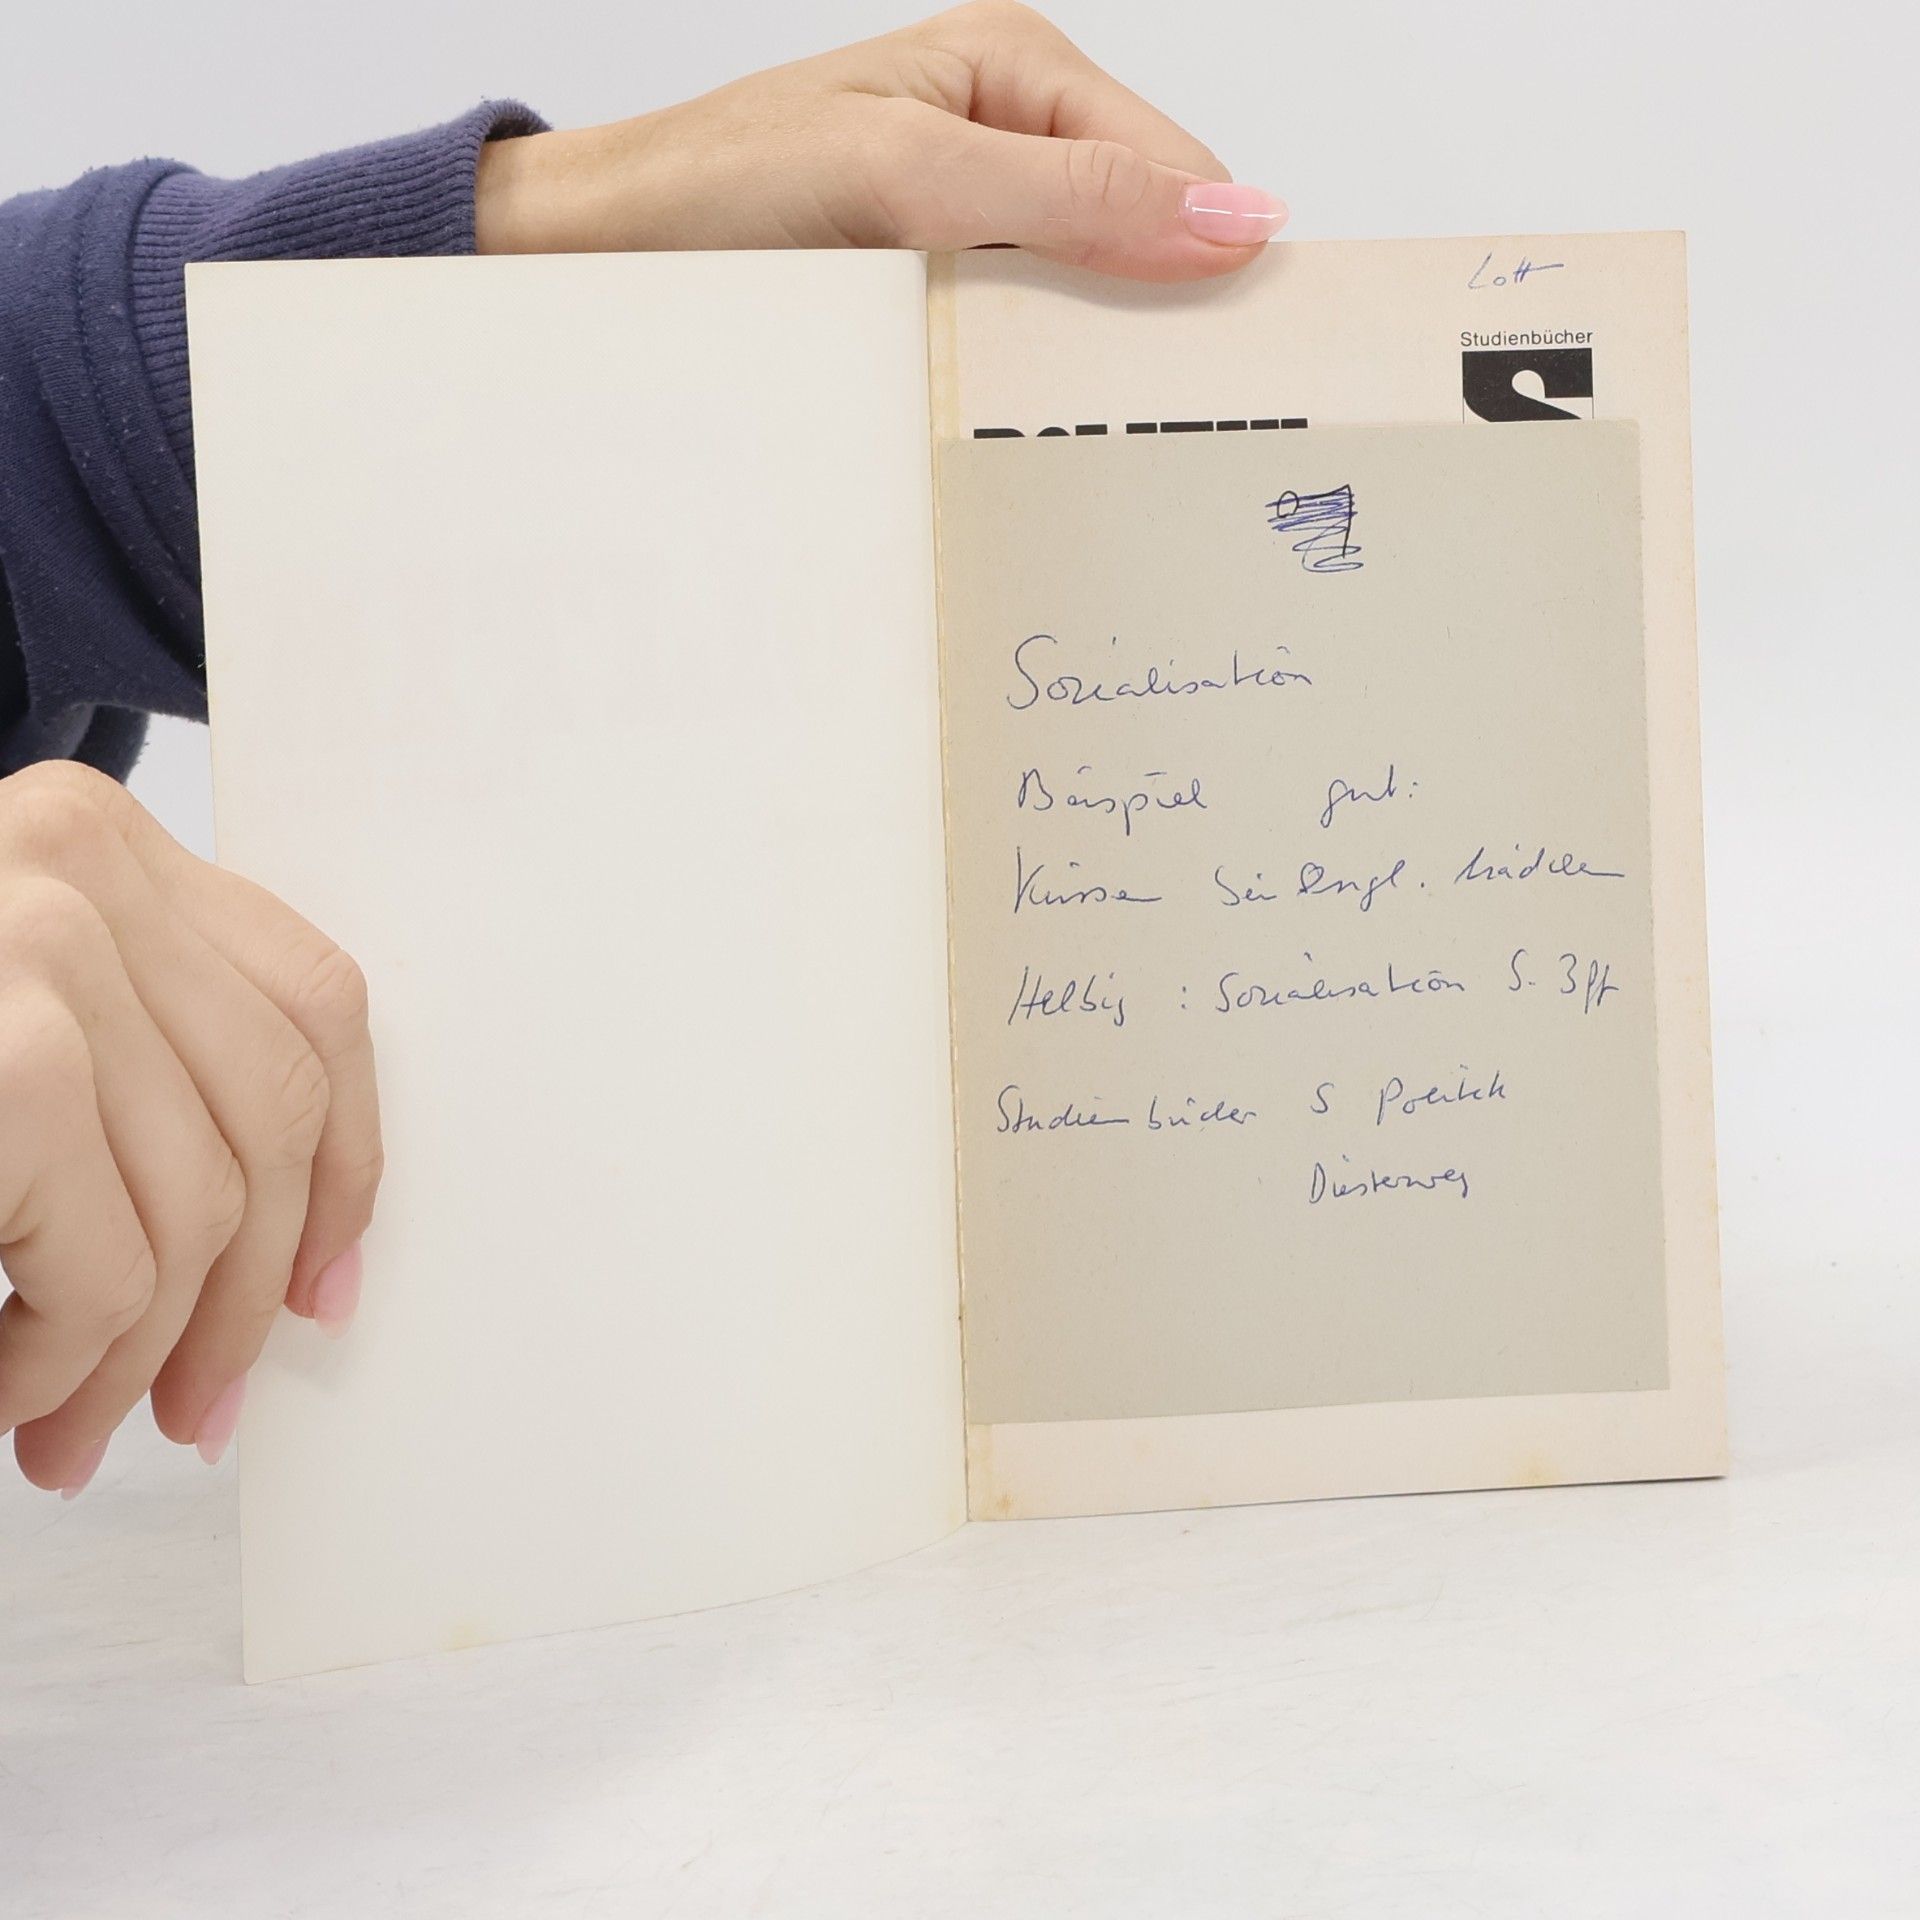 Lott
Studienbücher
S
POLITIK
Sozialisation
Beispiel gut:
Küssen bei engl. Mädchen
Helbig : Sozialisation S. 3 ff
Studienbücher S Politik
Diesterweg